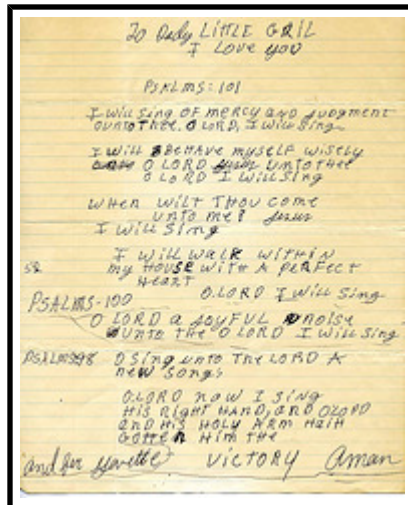 To Dady LITTLE GRIL
I Love you
PSALMS: 101
I will sing OF mercy and judgment
OUNTO thee. O LORD, I Will Sing
I will BEHAVE myself wisely
O LORD UNTO thee
O LORD I WILL SING
WHEN WILT THOU COME
UNTO me? Jesus
I WILL SING
I WILL WALK WITHIN
my HOUSE WITH A PERFECT
HEART
O.LORD I WILL SING
PSALMS-100
O LORD a JOYFUL NOISE
UNTO THE O LORD I WILL SING
PSALMS98 O Sing unto The LORD A
new songs
O.LORD now I sing
HIS RIGHT HAND, AND O LORD
AND HIS HOLY ARM HATH
GOTTEN HIM THE
VICTORY Aman
and for Yvette